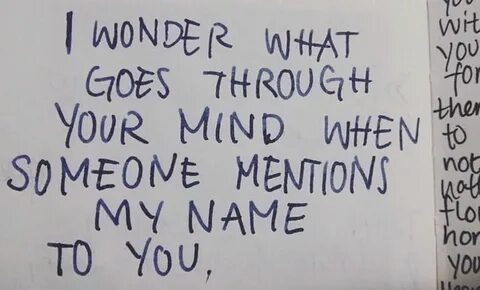 I WONDER WHAT
GOES THROUGH
YOUR MIND WHEN
SOMEONE MENTIONS
MY NAME
TO YOU.
wit
you
for
them
to
not
hor
you